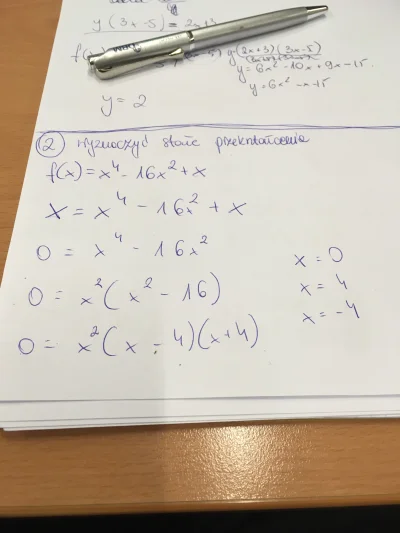 y(3x-5) = 2x+3
y(2x+3)(3x-5)
y=6x²-10x+9x-15
y=6x²-x-15
y = 2
② wyznaczyć stałe przekształcenia
f(x) = x⁴ - 16x² + x
x = x⁴ - 16x² + x
0 = x⁴ - 16x²
0 = x²(x² - 16)
0 = x²(x - 4)(x+4)
x = 0
x = 4
x = -4